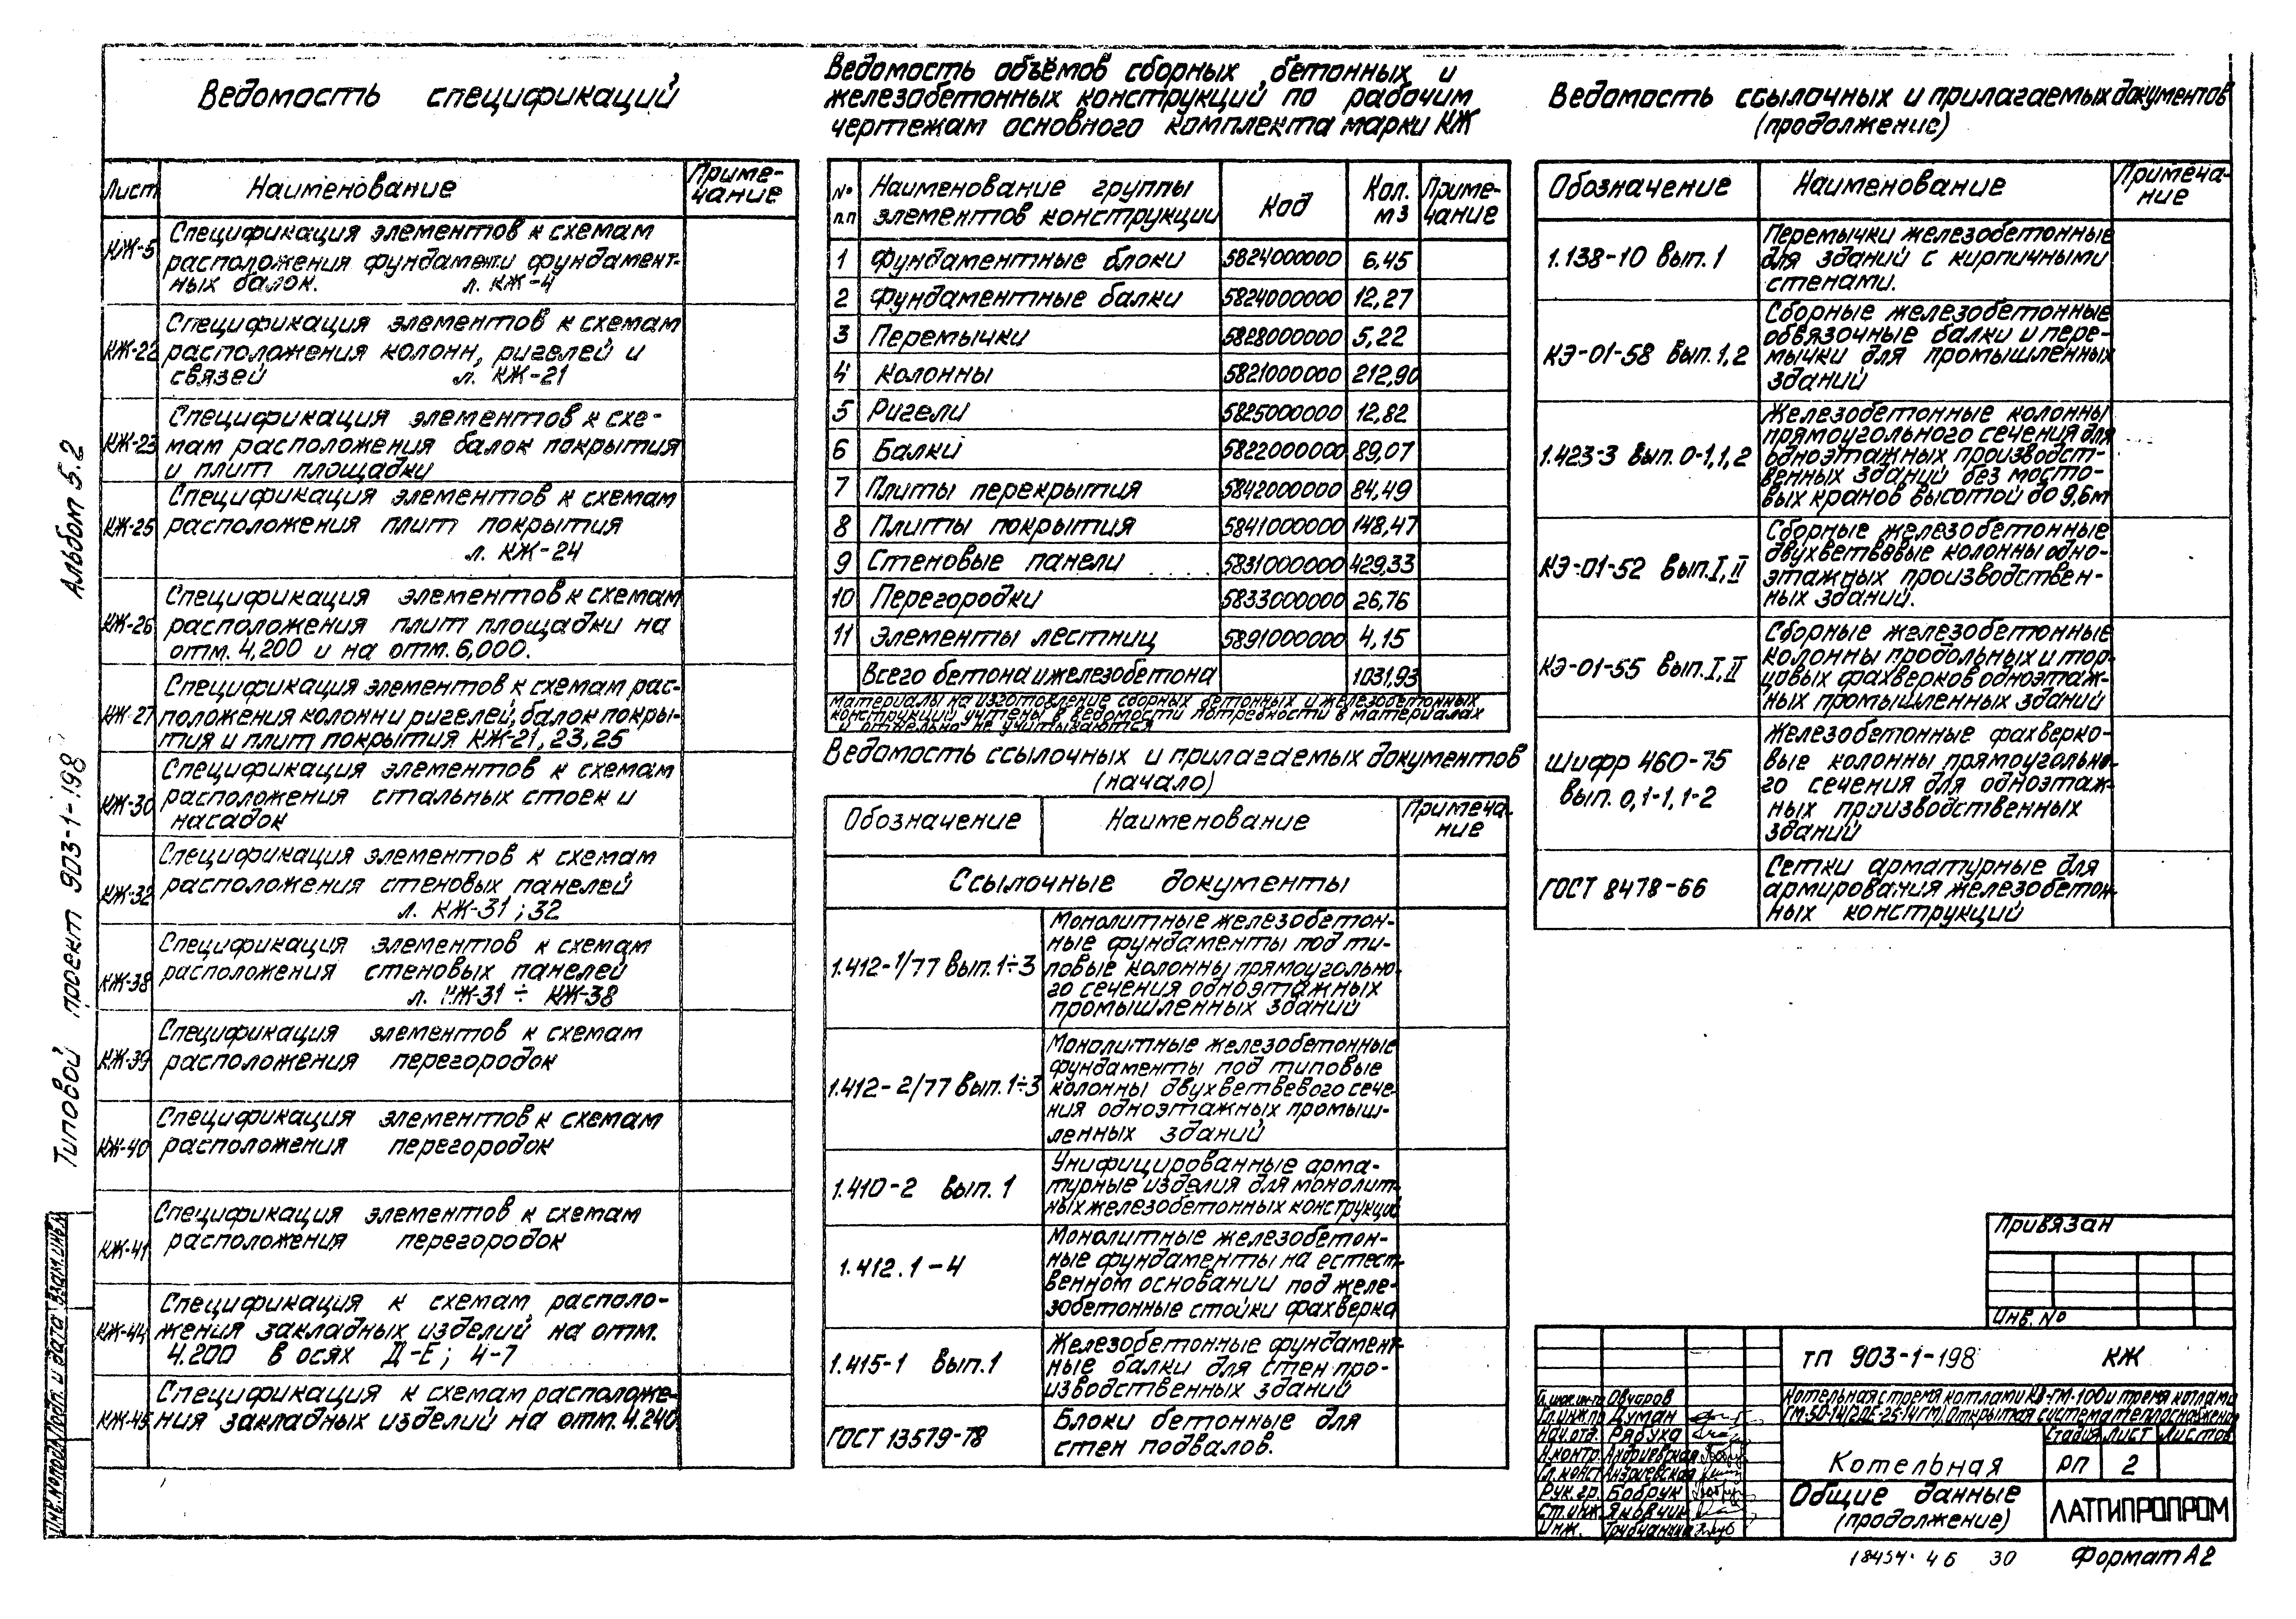 Ведомость спецификаций
Лист
Наименование
Приме-
чание
КЖ-5
Спецификация элементов к схемам
расположения фундаменти фундамент-
ных балок. л. КЖ-4
КЖ-22
Спецификация элементов к схемам
расположения колонн, ригелей и
связей л. КЖ-21
КЖ-23
Спецификация элементов к схе-
мам расположения балок покрытия
и плит площадки
КЖ-25
Спецификация элементов к схемам
расположения плит покрытия
л. КЖ-24
КЖ-26
Спецификация элементов к схемам
расположения плит площадки на
отм. 4,200 и на отм. 6,000.
КЖ-27
Спецификация элементов к схемам рас-
положения колонн и ригелей, балок покры-
тия и плит покрытия КЖ-21, 23, 25
КЖ-30
Спецификация элементов к схемам
расположения стальных стоек и
насадок
КЖ-32
Спецификация элементов к схемам
расположения стеновых панелей
л. КЖ-31 ; 32
КЖ-38
Спецификация элементов к схемам
расположения стеновых панелей
л. КЖ-31 ÷ КЖ-38
КЖ-39
Спецификация элементов к схемам
расположения перегородок
КЖ-40
Спецификация элементов к схемам
расположения перегородок
КЖ-41
Спецификация элементов к схемам
расположения перегородок
КЖ-44
Спецификация к схемам располо-
жения закладных изделий на отм.
4.200 в осях Д-Е ; 4-7
КЖ-45
Спецификация к схемам расположе-
ния закладных изделий на отм. 4.240.
Ведомость объёмов сборных бетонных и
железобетонных конструкций по рабочим
чертежам основного комплекта марки КЖ
№ п.п
Наименование группы
элементов конструкции
Код
Кол. м3
Приме-
чание
1 Фундаментные блоки 5824000000 6,45
2 Фундаментные балки 5824000000 12,27
3 Перемычки 5828000000 5,22
4 Колонны 5821000000 212,90
5 Ригели 5825000000 12,82
6 Балки 5822000000 89,07
7 Плиты перекрытия 5842000000 84,49
8 Плиты покрытия 5841000000 148,47
9 Стеновые панели 5831000000 429,33
10 Перегородки 5833000000 26,76
11 Элементы лестниц 5891000000 4,15
Всего бетона и железобетона 1031,93
Материалы на изготовление сборных бетонных и железобетонных
конструкций учтены в ведомости потребности в материалах
и отдельно не учитываются
Ведомость ссылочных и прилагаемых документов
(начало)
Обозначение
Наименование
Примеча-
ние
Ссылочные документы
1.412-1/77 вып. 1÷3
Монолитные железобетон-
ные фундаменты под ти-
повые колонны прямоугольно-
го сечения одноэтажных
промышленных зданий
1.412-2/77 вып. 1÷3
Монолитные железобетонные
фундаменты под типовые
колонны двухветвевого сече-
ния одноэтажных промыш-
ленных зданий
1.410-2 вып. 1
Унифицированные арма-
турные изделия для монолит-
ных железобетонных конструкций
1.412.1-4
Монолитные железобетон-
ные фундаменты на естест-
венном основании под желе-
зобетонные стойки фахверка
1.415-1 вып.1
Железобетонные фундамент-
ные балки для стен про-
изводственных зданий
ГОСТ 13579-78
Блоки бетонные для
стен подвалов.
Ведомость ссылочных и прилагаемых документов
(продолжение)
Обозначение
Наименование
Примеча-
ние
1.138-10 вып. 1
Перемычки железобетонные
для зданий с кирпичными
стенами.
КЭ-01-58 вып. 1,2
Сборные железобетонные
обвязочные балки и пере-
мычки для промышленных
зданий
1.423-3 вып. 0-1,1,2
Железобетонные колонны
прямоугольного сечения для
одноэтажных производст-
венных зданий без мосто-
вых кранов высотой до 9,6м
КЭ-01-52 вып. I, II
Сборные железобетонные
двухветвевые колонны одно-
этажных производствен-
ных зданий.
КЭ-01-55 вып. I, II
Сборные железобетонные
колонны продольных и тор-
цовых фахверков одноэтаж-
ных промышленных зданий
Шифр 460-75
вып. 0, 1-1, 1-2
Железобетонные фахверко-
вые колонны прямоугольно-
го сечения для одноэтаж-
ных производственных
зданий
ГОСТ 8478-66
Сетки арматурные для
армирования железобетон-
ных конструкций
Привязан
Инв. №
ТП 903-1-198 КЖ
Котельная с тремя котлами КВ-ГМ-100 и тремя котлами
ГМ-50-14(2ДЕ-25-14ГМ). Открытая система теплоснабжения
Стадия Лист Листов
РП 2
Котельная
Общие данные
(продолжение)
ЛАТГИПРОПРОМ
Гл.инж.ин-та Овчаров
Гл.инж.пр. Думан
Нач.отд. Рябуха
Н.контр. Андриевская
Гл.конст. Андриевская
Рук.гр. Бобрук
Ст.инж. Янович
Инж. Трубчанина
18454 46 30
Формат А2
Альбом 5.2
Типовой проект 903-1-198
Взам.инв.№
Подп. и дата
Инв.№подл.